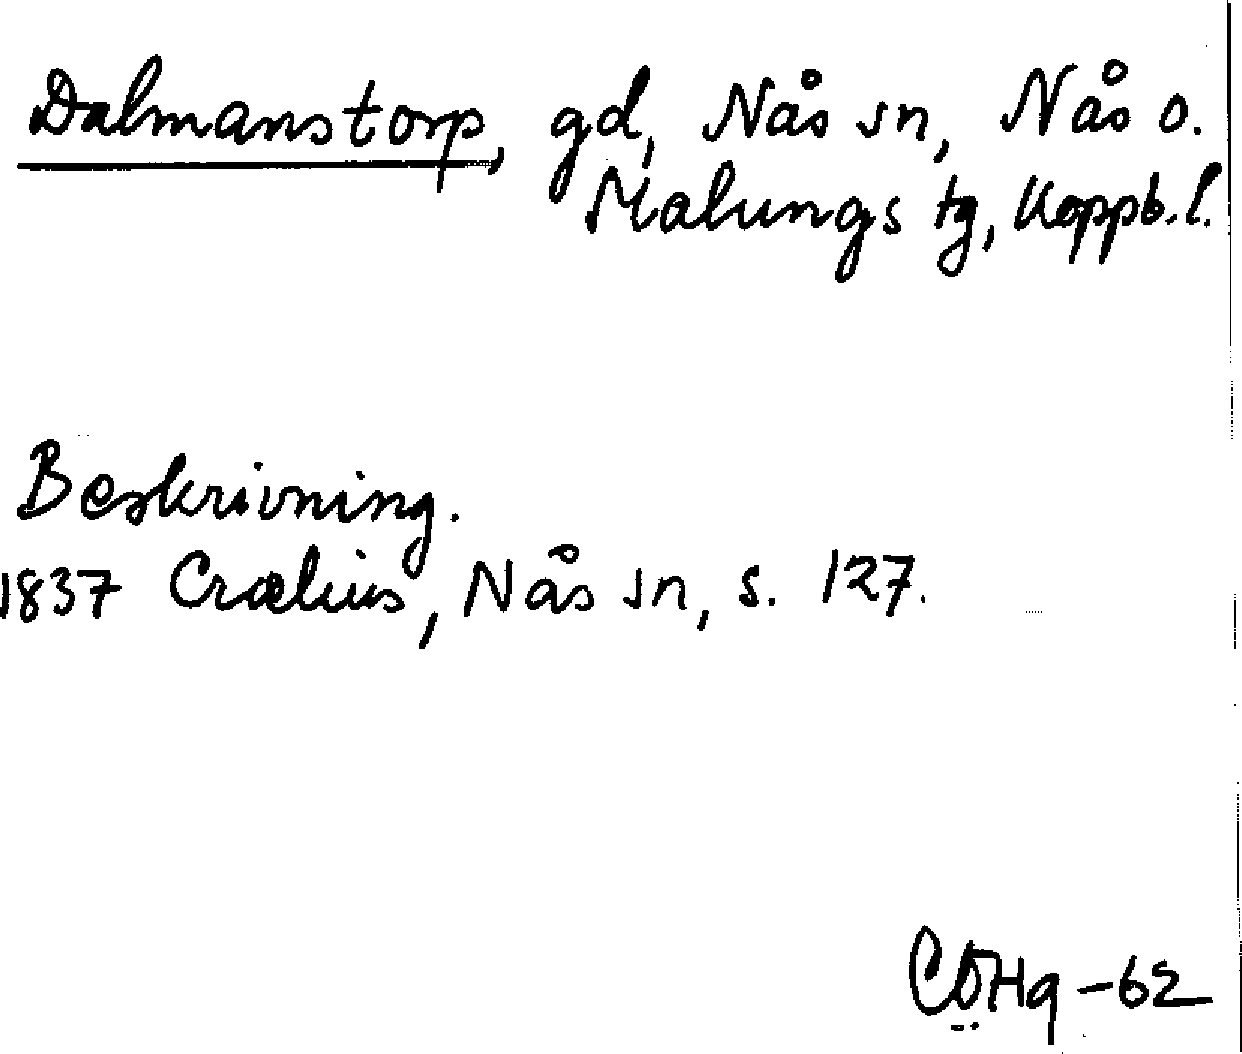 Dalmanstorp, gd, Nås sn, Nås o.
Malungs tg, Koppb. l.
Beskrivning.
1837 Crælius, Nås sn, s. 127.
-62